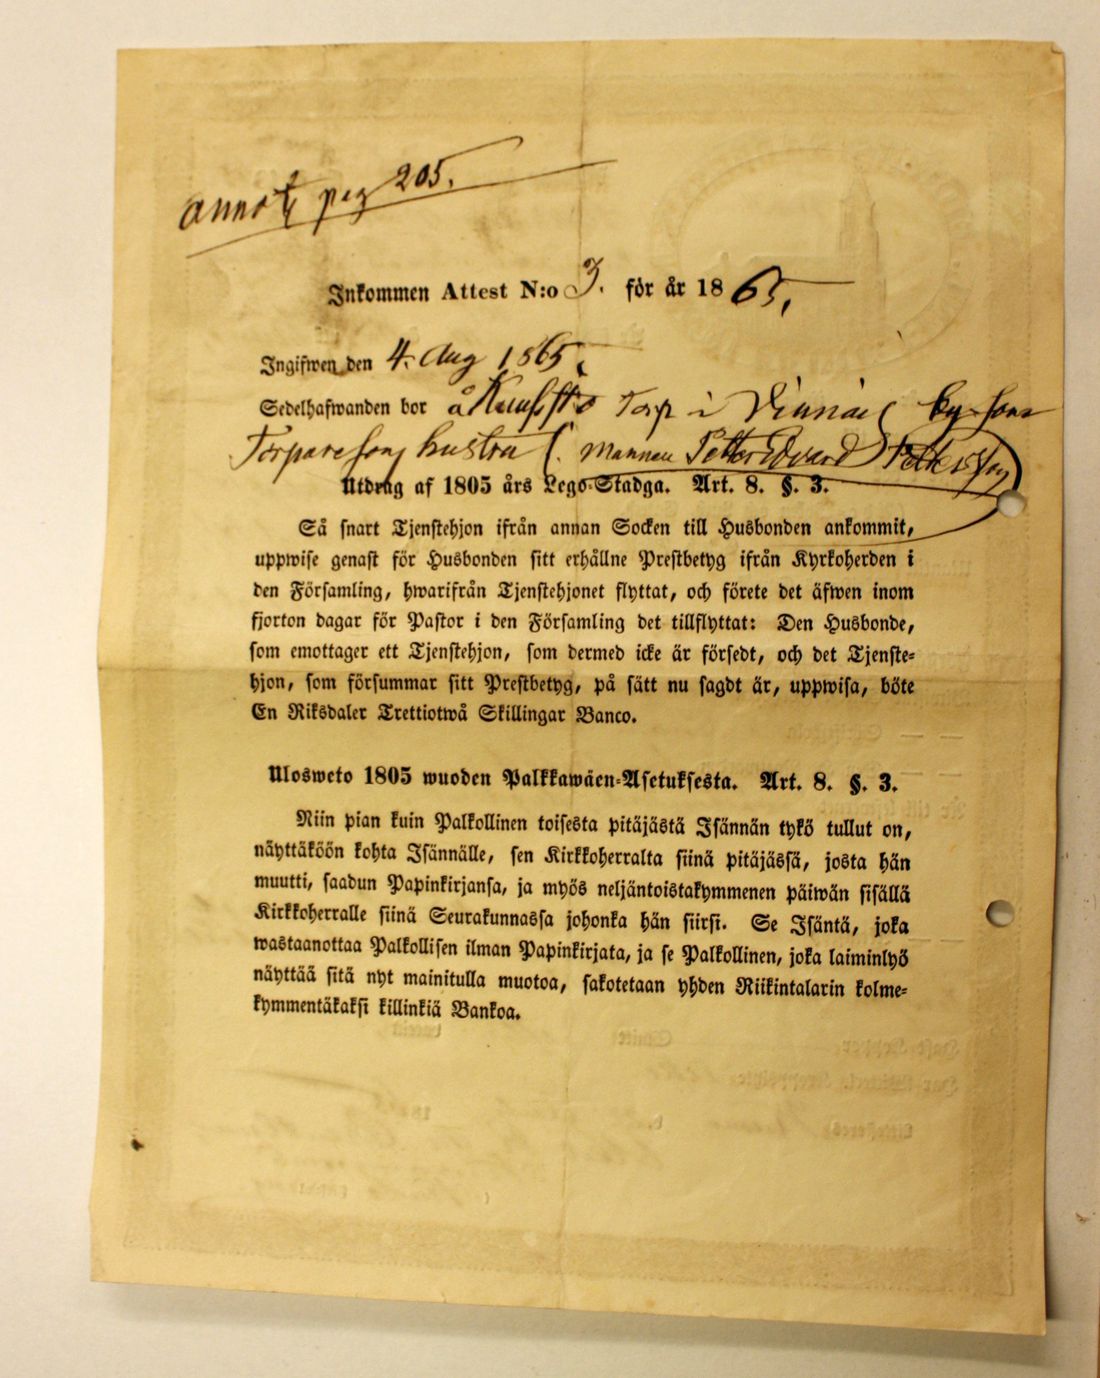 annot pag 205.
Inkommen Attest N:o 3. för år 1865.
Ingifwen den 4. Aug 1865.
Sedelhafwanden bor å Torp i by som
Torpare hustru (. mannen Petter Edvard Pettersson
Utdrag af 1805 års Lego-Stadga. Art. 8. §. 3.
Så snart Tjenstehjon ifrån annan Socken till Husbonden ankommit,
uppwise genast för Husbonden sitt erhållne Prestbetyg ifrån Kyrkoherden i
den Församling, hwarifrån Tjenstehjonet flyttat, och förete det äfwen inom
fjorton dagar för Pastor i den Församling det tillflyttat: Den Husbonde,
som emottager ett Tjenstehjon, som dermed icke är försedt, och det Tjenste-
hjon, som försummar sitt Prestbetyg, på sätt nu sagdt är, uppwisa, böte
En Riksdaler Trettiotwå Skillingar Banco.
Ulosweto 1805 wuoden Palkkawäen-Asetuksesta. Art. 8. §. 3.
Niin pian kuin Palkollinen toisesta pitäjästä Isännän tykö tullut on,
näyttäköön kohta Isännälle, sen Kirkkoherralta siinä pitäjässä, josta hän
muutti, saadun Papinkirjansa, ja myös neljäntoistakymmenen päiwän sisällä
Kirkkoherralle siinä Seurakunnassa johonka hän siirsi. Se Isäntä, joka
wastaanottaa Palkollisen ilman Papinkirjata, ja se Palkollinen, joka laiminlyö
näyttää sitä nyt mainitulla muotoa, sakotetaan yhden Riikintalarin kolme-
kymmentäkaksi killinkiä Bankoa.